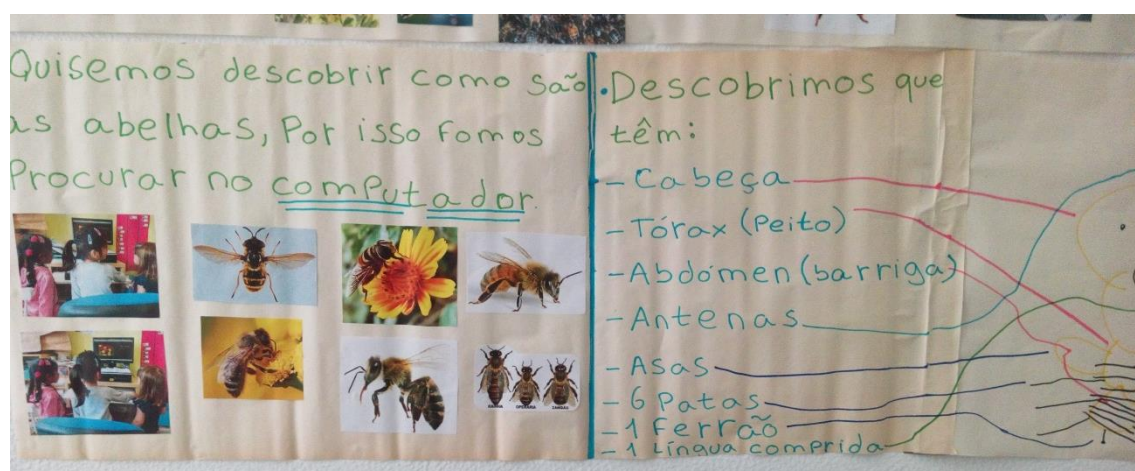 Quisemos descobrir como são
as abelhas, Por isso fomos
Procurar no computador.
RAINHA OPERÁRIA ZANGÃO
.Descobrimos que
têm:
- Cabeça
- Tórax (Peito)
- Abdómen (barriga)
- Antenas
- Asas
- 6 Patas
- 1 Ferrão
- 1 Língua comprida